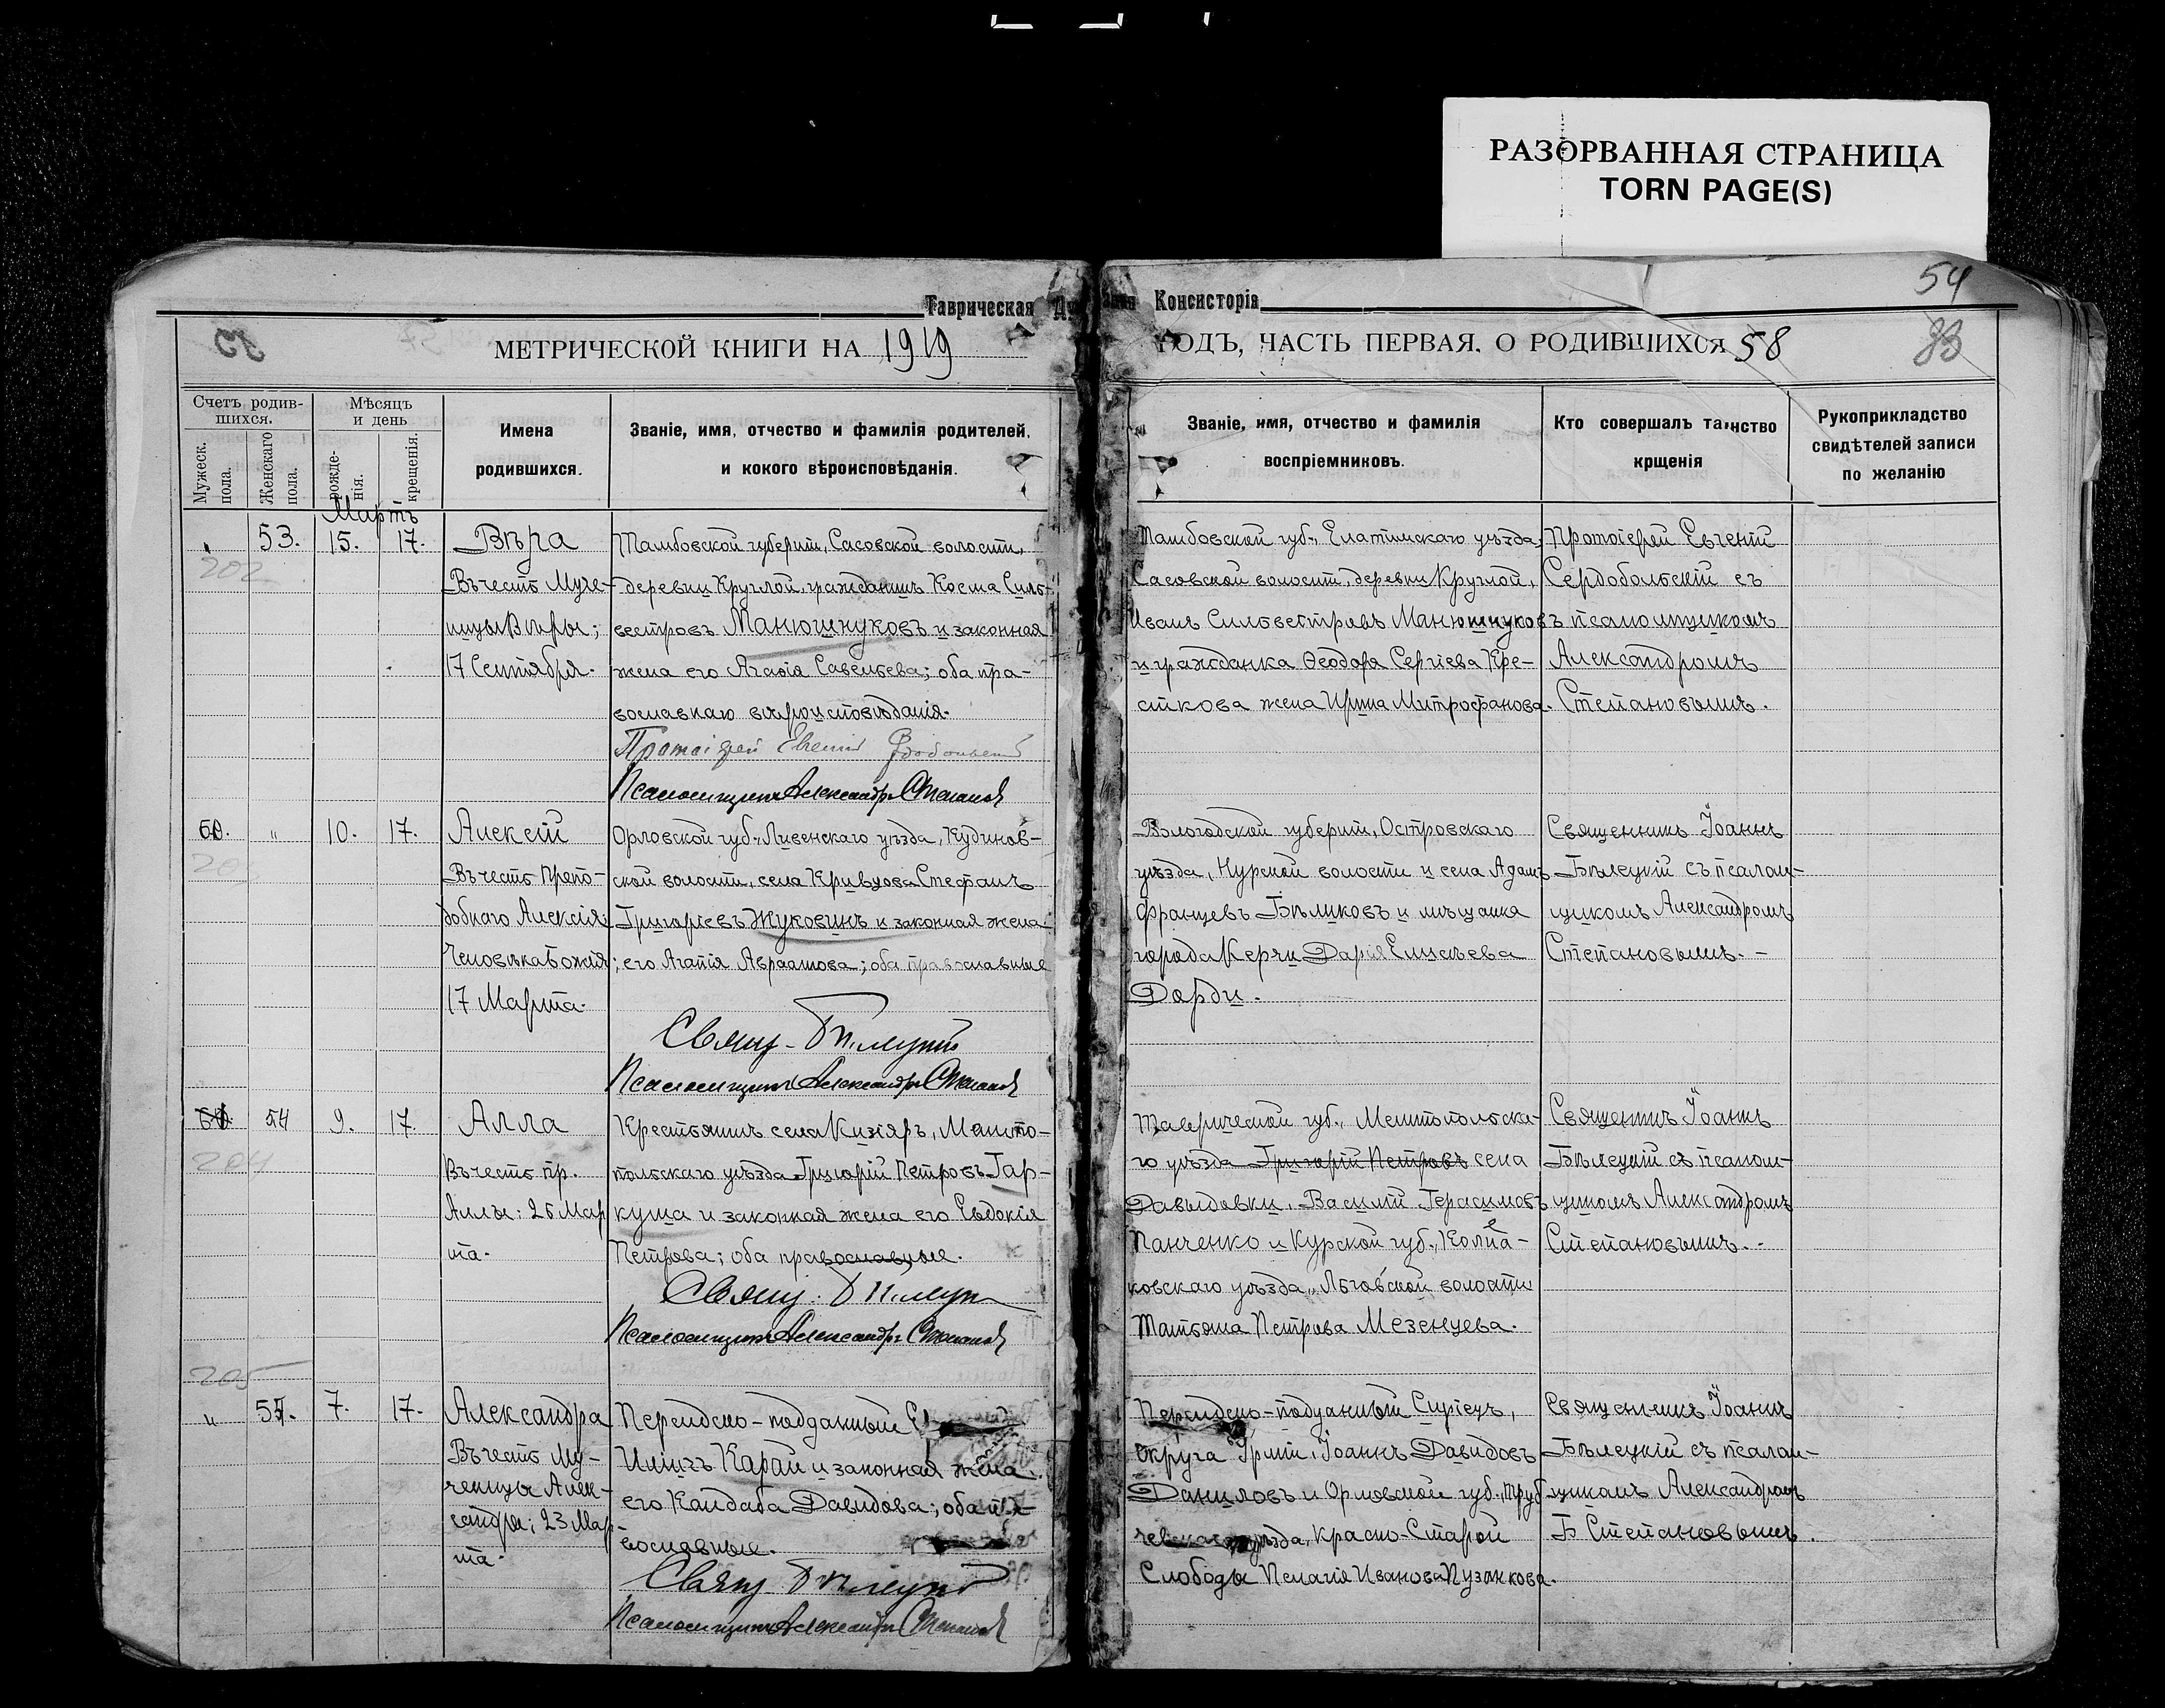 РАЗОРВАННАЯ СТРАНИЦА
TORN PAGE(S)
54
Таврическая Ду
Консисторія
МЕТРИЧЕСКОЙ КНИГИ НА 1919
ГОДЪ, ЧАСТЬ ПЕРВАЯ. О РОДИВШИХСЯ 58
33
Счетъ родив-
шихся.
Мужеск. пола.
Женскаго пола.
Мѣсяцъ
и день
рожде-
нія.
крещенія.
Имена
родившихся.
Званіе, имя, отчество и фамилія родителей,
и кокого вѣроисповѣданія.
Званіе, имя, отчество и фамилія
воспріемниковъ.
Кто совершалъ таинство
крщенія
Рукоприкладство
свидѣтелей записи
по желанію
Мартъ
53. 15. 17.
202
Вѣра
Въ честь Муче-
ницы Вѣры;
17 Сентября.
Тамбовской губерніи, Сасовской волости,
деревни Круглой, гражданинъ Косма Силь-
вестровъ Манюшнуковъ и законная
жена его Агафія Савельева; оба пра-
вославнаго вѣроисповѣданія.
Протоіерей Евгеній
Псаломщикъ Александръ Степановъ
Тамбовской губ., Елатимскаго уѣзда,
Сасовской волости, деревни Круглой,
Иванъ Сильвестровъ Манюшнуковъ
и гражданка Ѳеодора Сергіева Кре-
сткова жена Ирина Митрофанова.
Протоіерей Евгеній
Сердобольскій съ
псаломщикомъ
Александромъ
Степановымъ.
60. " 10. 17.
Алексій
Въ честь Препо-
добнаго Алексія
Человѣка Божія;
17 Марта.
Орловской губ., Ливенскаго уѣзда, Кудинов-
ской волости, села Кривцова Стефанъ
Григоріевъ Жуковинъ и законная жена
его Агапія Авраамова; оба православные
Свящ. Бѣлецкій
Псаломщикъ Александръ Степановъ
Вологодской губерніи, Островскаго
уѣзда, Нурской волости и села Адамъ
Францевъ Бѣликовъ и мѣщанка
города Керчи Дарія Елисѣева
Дорди.
Священникъ Іоаннъ
Бѣлецкій съ псалом-
щикомъ Александромъ
Степановымъ. -
54 9. 17.
204
Алла
Въ честь пр.
Аллы: 26 Мар
та.
Крестьянинъ села Кизіяръ, Мелито-
польскаго уѣзда Григорій Петровъ Гар-
куша и законная жена его Евдокія
Петрова; оба православные.
Свящ. Бѣлецкій
Псаломщикъ Александръ Степановъ
Таврической губ., Мелитопольска-
го уѣзда Григорій Петровъ села
Давыдовки, Василій Герасимовъ
Панченко и Курской губ.,
ковскаго уѣзда, Льговской волости
Татьяна Петрова Мезенцева.
Священникъ Іоаннъ
Бѣлецкій съ псалом-
щикомъ Александромъ
Степановымъ. -
205
" 55. 7. 17.
Александра
Въ честь Му-
ченицы Алек-
сандры; 23 Мар-
та.
Персидско-подданный
Иліичъ Карай и законная жена
его Кандаба Давидова; оба пра-
вославные.
Свящ. Бѣлецкій
Псаломщикъ Александръ Степановъ
Персидско-подданный Сиріецъ,
округа Урміи, Іоаннъ Давидовъ
Даниловъ и Орловской губ., Труб
чевскаго уѣзда, Красно-Старой
Слободы Пелагія Иванова Пузанкова.
Священникъ Іоаннъ
Бѣлецкій съ псалом-
щикомъ Александром
ъ Степановымъ.